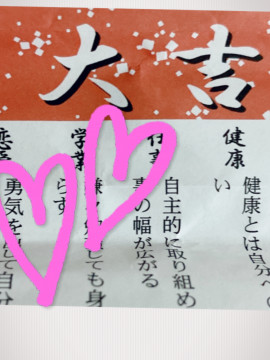 大吉
健康
健康とは自分への
い
仕事
自主的に取り組め
事の幅が広がる
学業
しても身
らず
勇気を出して自分